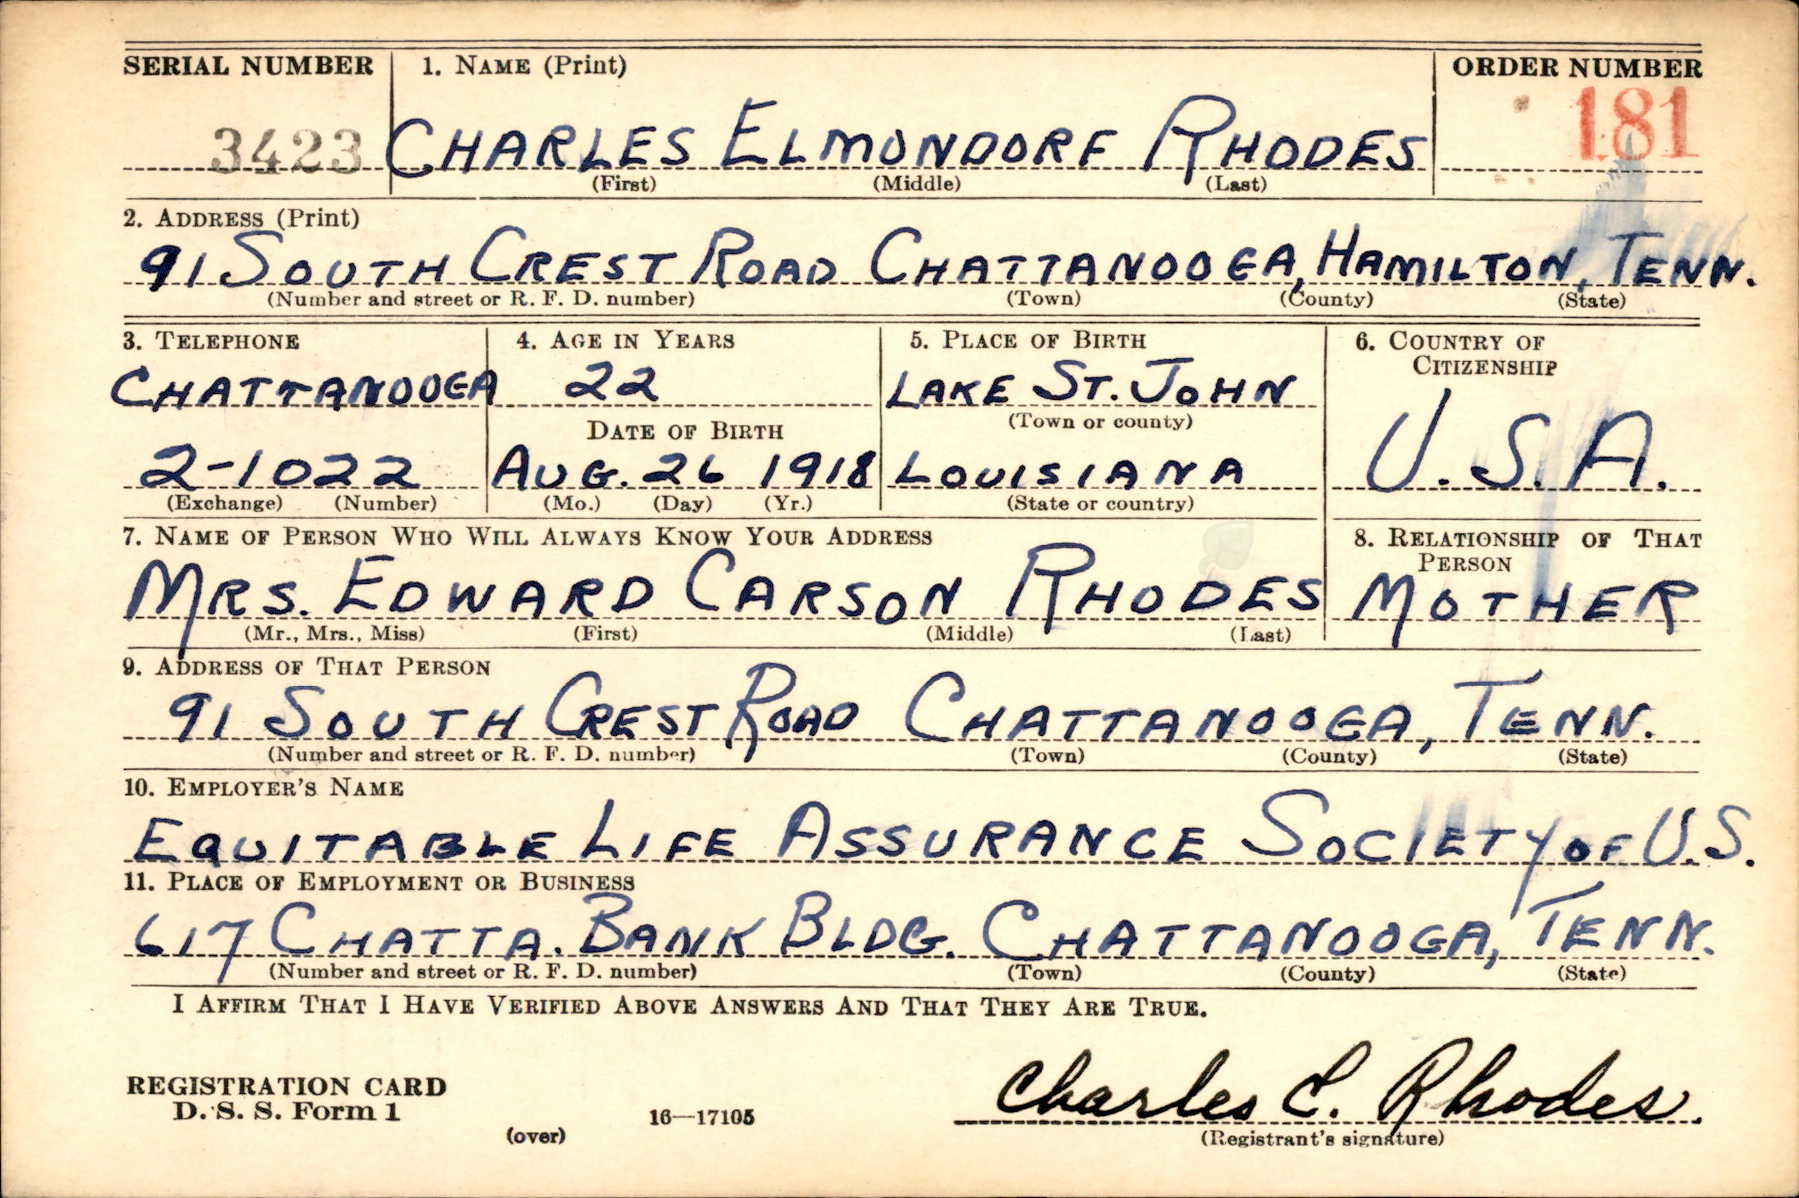 SERIAL NUMBER 1. NAME (Print) ORDER NUMBER
3423 CHARLES ELMONDORF RHODES 181
(First) (Middle) (Last)
2. ADDRESS (Print)
91 SOUTH CREST ROAD CHATTANOOGA, HAMILTON, TENN.
(Number and street or R. F. D. number) (Town) (County) (State)
3. TELEPHONE 4. AGE IN YEARS 5. PLACE OF BIRTH 6. COUNTRY OF
CITIZENSHIP
CHATTANOOGA 22 LAKE ST. JOHN
(Town or county)
DATE OF BIRTH
2-1022 AUG. 26 1918 LOUISIANA U.S.A.
(Exchange) (Number) (Mo.) (Day) (Yr.) (State or country)
7. NAME OF PERSON WHO WILL ALWAYS KNOW YOUR ADDRESS 8. RELATIONSHIP OF THAT
PERSON
MRS. EDWARD CARSON RHODES MOTHER
(Mr., Mrs., Miss) (First) (Middle) (Last)
9. ADDRESS OF THAT PERSON
91 SOUTH CREST ROAD CHATTANOOGA, TENN.
(Number and street or R. F. D. number) (Town) (County) (State)
10. EMPLOYER'S NAME
EQUITABLE LIFE ASSURANCE SOCIETY OF U.S.
11. PLACE OF EMPLOYMENT OR BUSINESS
617 CHATTA. BANK BLDG. CHATTANOOGA, TENN.
(Number and street or R. F. D. number) (Town) (County) (State)
I AFFIRM THAT I HAVE VERIFIED ABOVE ANSWERS AND THAT THEY ARE TRUE.
REGISTRATION CARD
D. S. S. Form 1 16—17105 Charles E. Rhodes.
(over) (Registrant's signature)